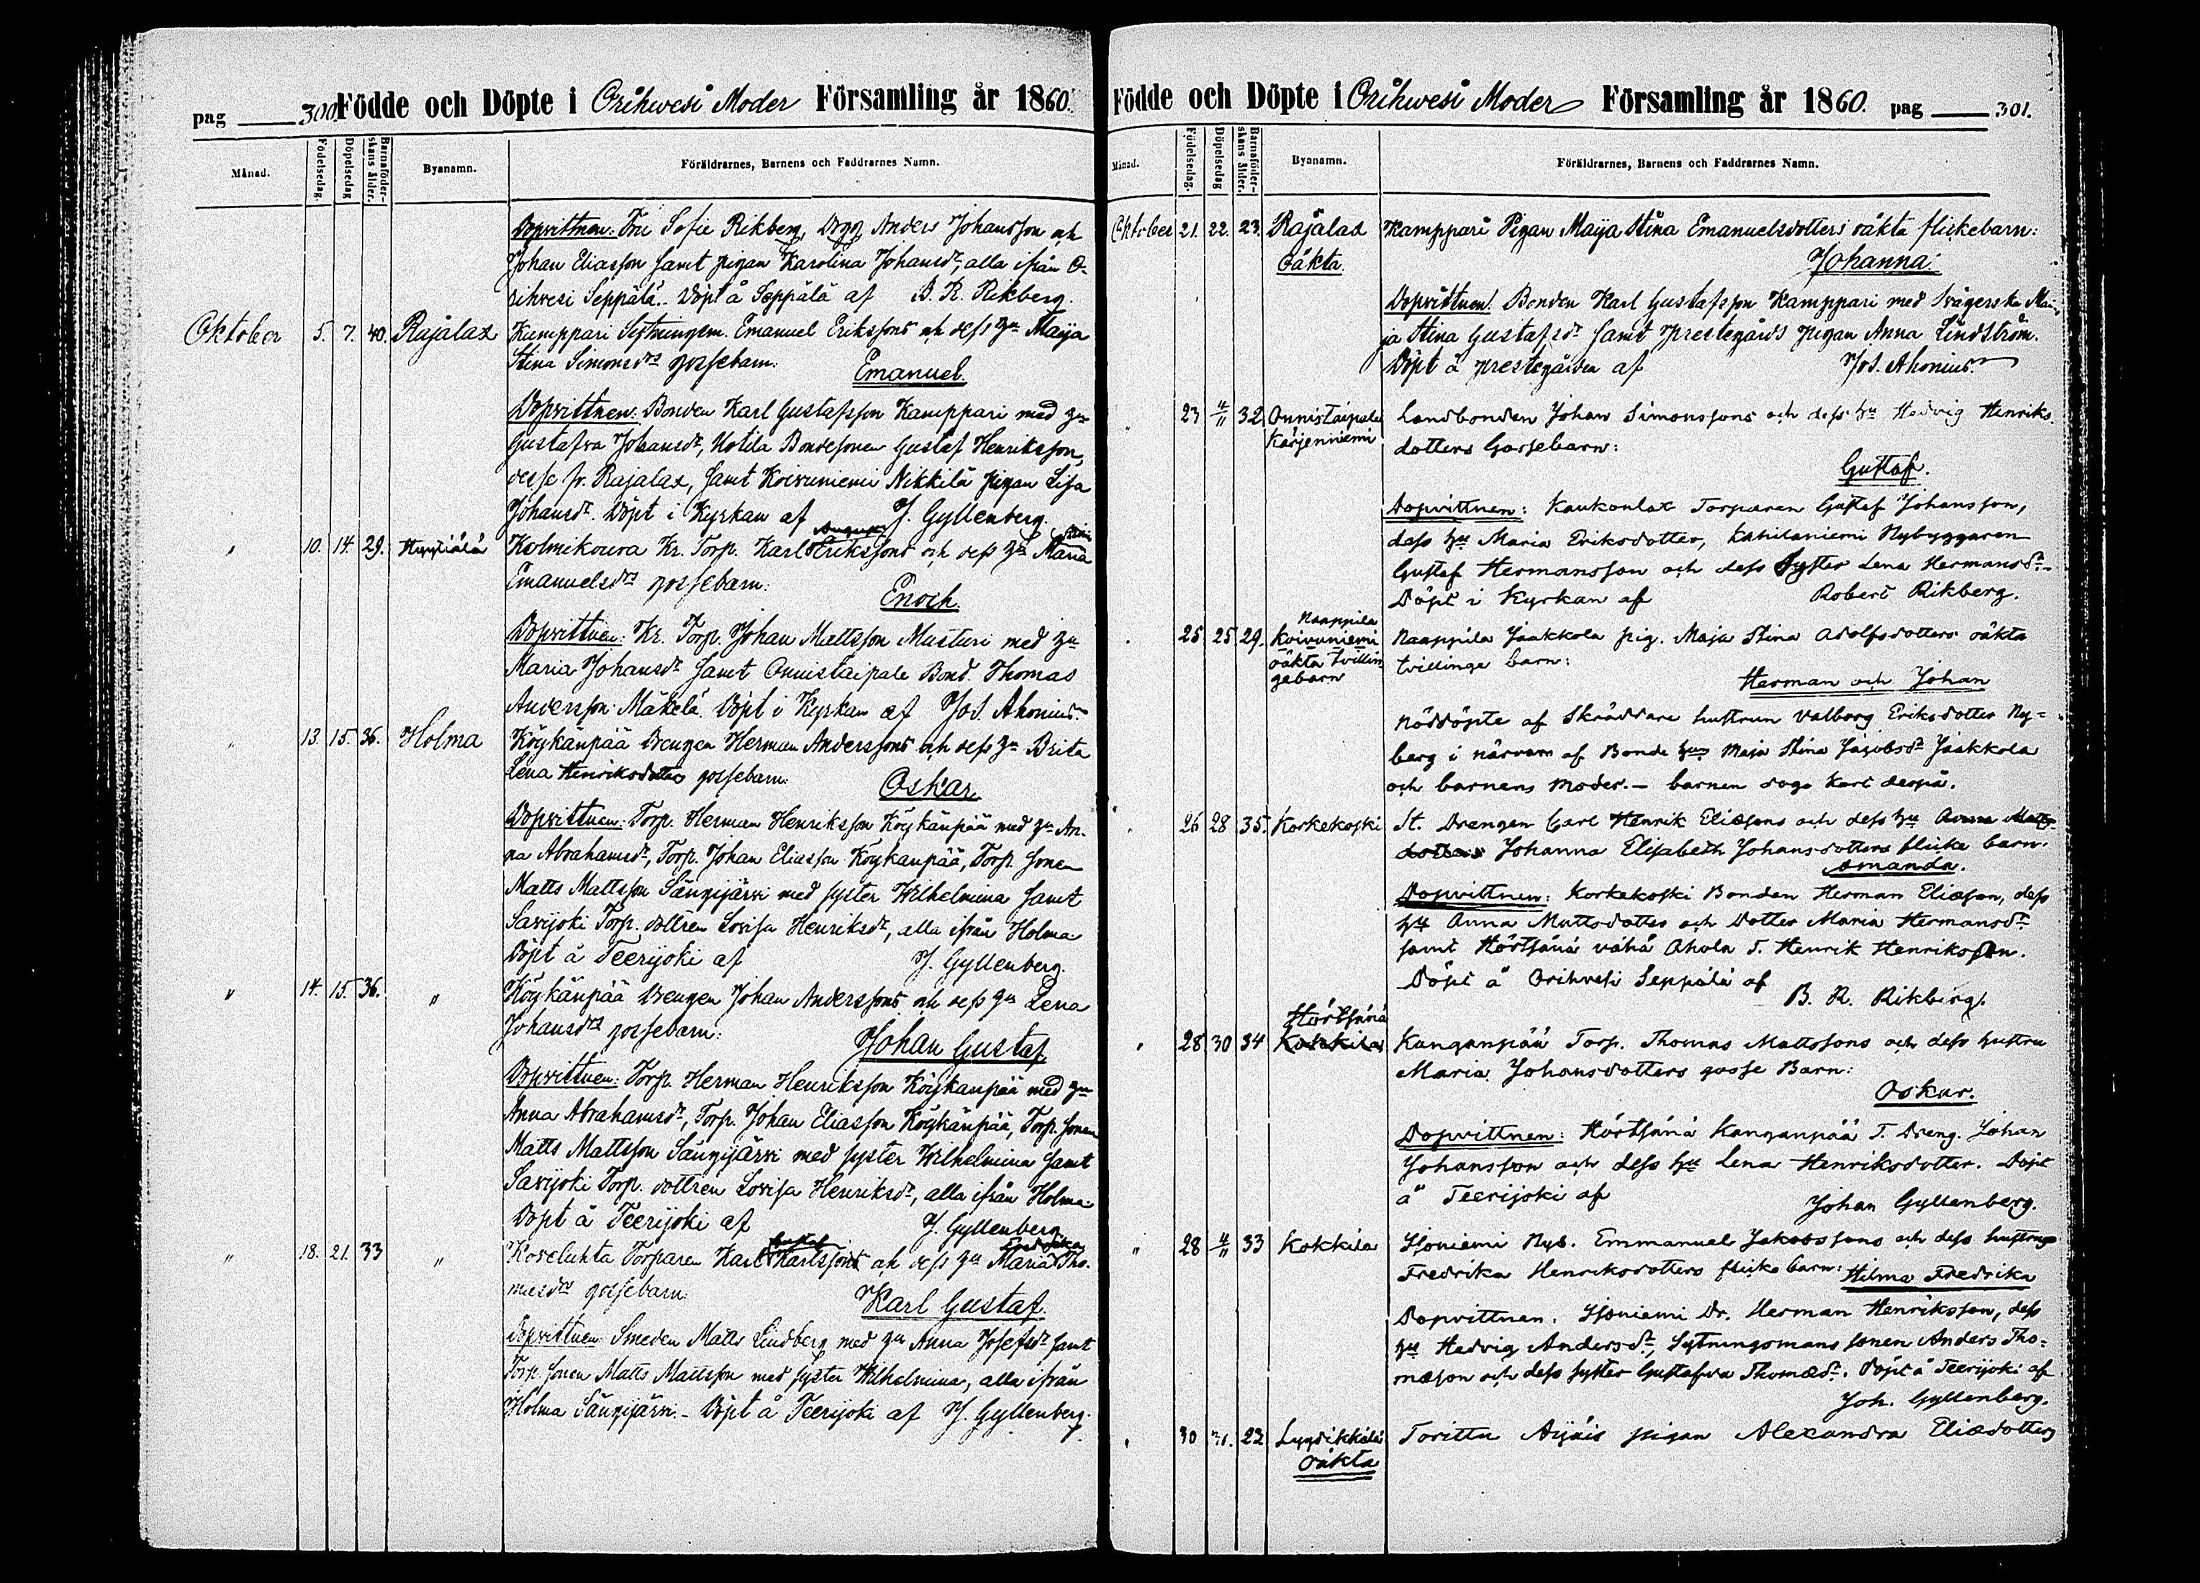 pag 300. Födde och Döpte i Orihwesi Moder Församling år 1860.
Månad. Födelsedag. Döpelsedag Barnaföderskans ålder. Byanamn. Föräldrarnes, Barnens och Faddrarnes Namn.
Dopvittnen: Fru Sofie Rikberg, Anders Johansson och
Johan Eliasson samt pigan Karolina Johansdr, alla ifrån O-
rihvesi Seppälä. Döpt å Seppälä af B. R. Rikberg.
Oktober 5. 7. 40. Rajalax Kamppari Sytningsm. Emanuel Erikssons och dess hu Maija
Stina Simonsdrs gossebarn: Emanuel.
Dopvittnen: Bonden Karl Gustafsson Kamppari med hu
Gustafva Johansdr, Uotila Bondesonen Gustaf Henriksson,
desse fr. Rajalax, samt Koivuniemi Nikkilä pigan Lisa
Johansdr. Döpt i Kyrkan af J. Gyllenberg.
" 10. 14. 29. Hyytiälä Kolmikoura Kr. Torp. Karl Erikssons och dess hu Maria
Emanuelsdrs gossebarn: Enoch.
Dopvittnen: Kr. Torp. Johan Mattsson Musturi med hu
Maria Johansdr samt Onnistaipale Bond. Thomas
Andersson Mäkelä. Döpt i Kyrkan af Jos. Ahonius.
" 13. 15. 36. Holma Köykänpää Drengen Herman Anderssons och dess hu Brita
Lena Henriksdotters gossebarn: Oskar.
Dopvittnen: Torp. Herman Henriksson Köykänpää med hu An-
na Abrahamsdr, Torp. Johan Eliasson Köykänpää, Torp. sonen
Matts Mattsson Sängijärvi med syster Wilhelmina samt
Savijoki Torp. dottren Lovisa Henriksdr, alla ifrån Holma
Döpt å Teerijoki af J. Gyllenberg.
" 14. 15. 36. " Köykänpää Drengen Johan Anderssons och dess hu Lena
Johansdrs gossebarn: Johan Gustaf
Dopvittnen: Torp. Herman Henriksson Köykänpää med hu
Anna Abrahamsdr, Torp. Johan Eliasson Köykänpää, Torp. sonen
Matts Mattsson Sängijärvi med syster Wilhelmina samt
Savijoki Torp. dottren Lovisa Henriksdr, alla ifrån Holma.
Döpt å Teerijoki af J. Gyllenberg.
Gustaf Fredrika
" 18. 21. 33 " Koveluhta Torparen Karl Karlssons och dess hu Maria Tho-
masdrs gossebarn: Karl Gustaf.
Dopvittnen: Smeden Matts Lindberg med hu Anna Josefsdr samt
Torp. sonen Matts Mattsson med syster Wilhelmina, alla ifrån
Holma Sängijärvi. - Döpt å Teerijoki af J. Gyllenberg.
Födde och Döpte i Orihwesi Moder Församling år 1860. pag 301.
Månad. Födelsedag. Döpelsedag Barnaföderskans ålder. Byanamn. Föräldrarnes, Barnens och Faddrarnes Namn.
Oktober 21. 22. 23. Rajalax Kamppari Pigan Maija Stina Emanuelsdotters oäkta flickebarn:
oäkta. Johanna.
Dopvittnen: Bonden Karl Gustafsson Kamppari med svägerska Mai-
ja Stina Gustafsdr samt prestegårds pigan Anna Lindström.
Döpt å prestegården af Jos. Ahonius.
" 23 4/11 32 Onnistaipale Landbonden Johan Simonssons och dess hu Hedvig Henriks-
Karjenniemi dotters Gossebarn:
Gustaf.
Dopvittnen: Kaukonlax Torparen Gustaf Johansson,
dess hu Maria Eriksdotter, Kahilaniemi Nybyggaren
Gustaf Hermansson och dess syster Lena Hermansdr.
Döpt i Kyrkan af Robert Rikberg.
Naappila
" 25 25 29. Koivuniemi Naappila Jaakkola pig. Maja Stina Adolfsdotters oäkta
oäkta tvillin tvillinge barn:
gebarn Herman och Johan
nöddöpta af Skräddare hustrun Valborg Eriksdotter Ny-
berg i närvaro af Bonde hus Maja Stina Jakobsdr Jaakkola
och barnens moder. - barnen dogo kort derpå.
" 26 28 35. Korkekoski St. Drengen Carl Henrik Eliasons och dess hu Anna Matts-
dotters Johanna Elisabeth Johansdotters flicke barn.
Amanda.
Dopvittnen: Korkekoski Bonden Herman Eliason, dess
hu Anna Mattsdotter och Dotter Maria Hermansdr
samt Hörtsänä vähä Ahola T. Henrik Henriksson.
Döpt å Orihvesi Seppälä af B. R. Rikberg.
Hörtsänä
" 28 30 34 Kokkila Kanganpää Torp. Thomas Mattssons och dess hustru
Maria Johansdotters gosse Barn:
Oskar.
Dopvittnen: Hörtsänä Kanganpää T. Dreng. Johan
Johansson och dess hu Lena Henriksdotter. Döpt
å Teerijoki af Johan Gyllenberg.
" 28 4/11 33 Kokkila Isoniemi Nyb. Emmanuel Jakobssons och dess hustrus
Fredrika Henriksdotters flicke barn: Hilma Fredrika
Dopvittnen. Isoniemi Dr. Herman Henriksson, dess
hu Hedvig Andersdr, Sytningsmans sonen Anders Tho-
mason och dess syster Gustafva Thomasdr. Döpt å Teerijoki af
Joh. Gyllenberg.
" 30 31. 23 Lyydikkälä Torittu Äijäis pigan Alexandra Eliædotters
oäkta